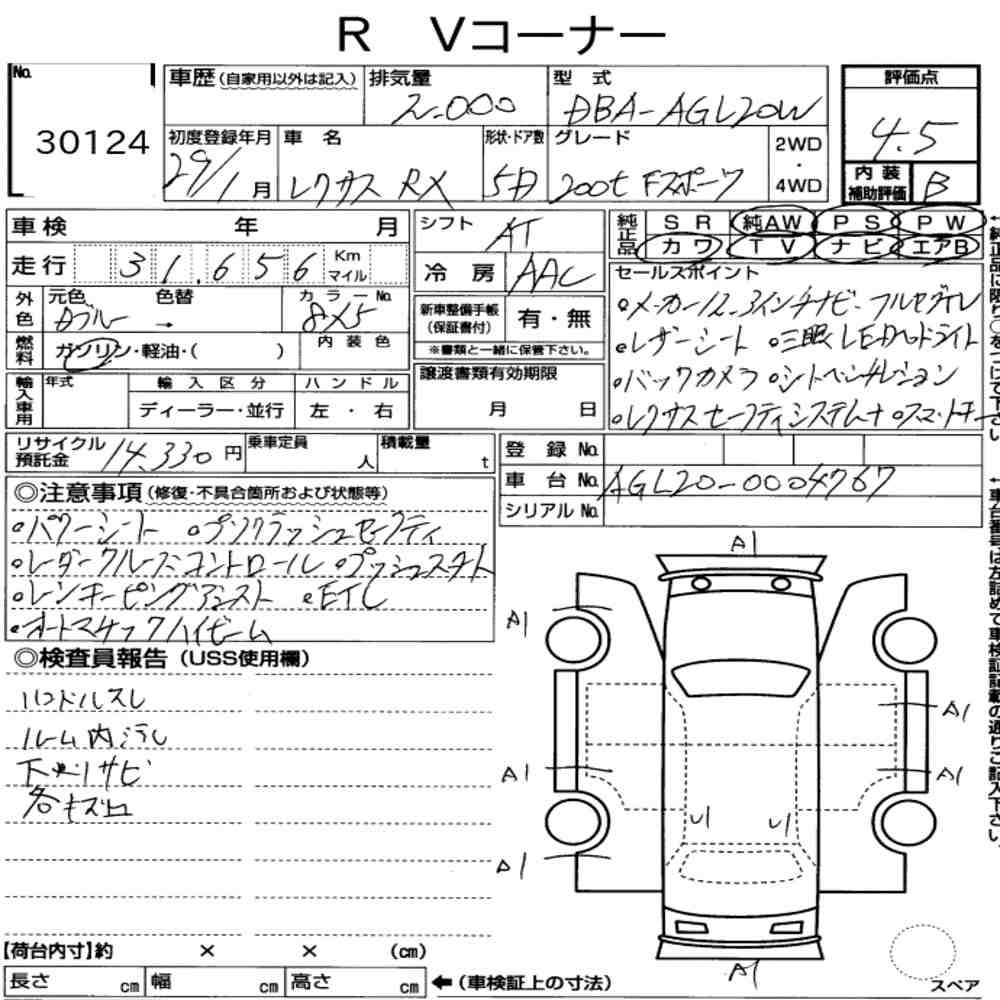 R Vコーナー
No. 30124
車歴(自家用以外は記入)
排気量 2.000
型式 DBA-AGL20W
評価点 4.5
初度登録年月 29/1月
車名 レクサス RX
形状・ドア数 5D
グレード 200t Fスポーツ
2WD・4WD
内装補助評価 B
車検 年 月
シフト AT
純正品 SR 純AW PS PW
カワ TV ナビ エアB
走行 31,656 Km マイル
冷房 AAC
セールスポイント
外色 元色 Dブルー 色替 →
カラーNo. 8X5
新車整備手帳(保証書付) 有・無
※書類と一緒に保管下さい。
・メーカー12.3インチナビ フルセグTV
・レザーシート ・三眼LEDヘッドライト
・バックカメラ ・シートベンチレーション
燃料 ガソリン・軽油・( )
内装色
輸入車用 年式 輸入区分 ハンドル
ディーラー・並行 左・右
譲渡書類有効期限
月 日
リサイクル預託金 14,330円
乗車定員 人
積載量 t
登録No.
車台No. AGL20-0004767
シリアルNo.
◎注意事項(修復・不具合箇所および状態等)
・パワーシート ・プリクラッシュセーフティ
・レーダークルーズコントロール ・プッシュスタート
・レーンキーピングアシスト ・ETC
・オートマチックハイビーム
◎検査員報告(USS使用欄)
ハンドルスレ
ルーム内汚レ
下廻リサビ
各キズ凹
A1
A1
A1
A1
A1
A1
A1
【荷台内寸】約 × × (cm)
長さ cm 幅 cm 高さ cm ←(車検証上の寸法)
スペア